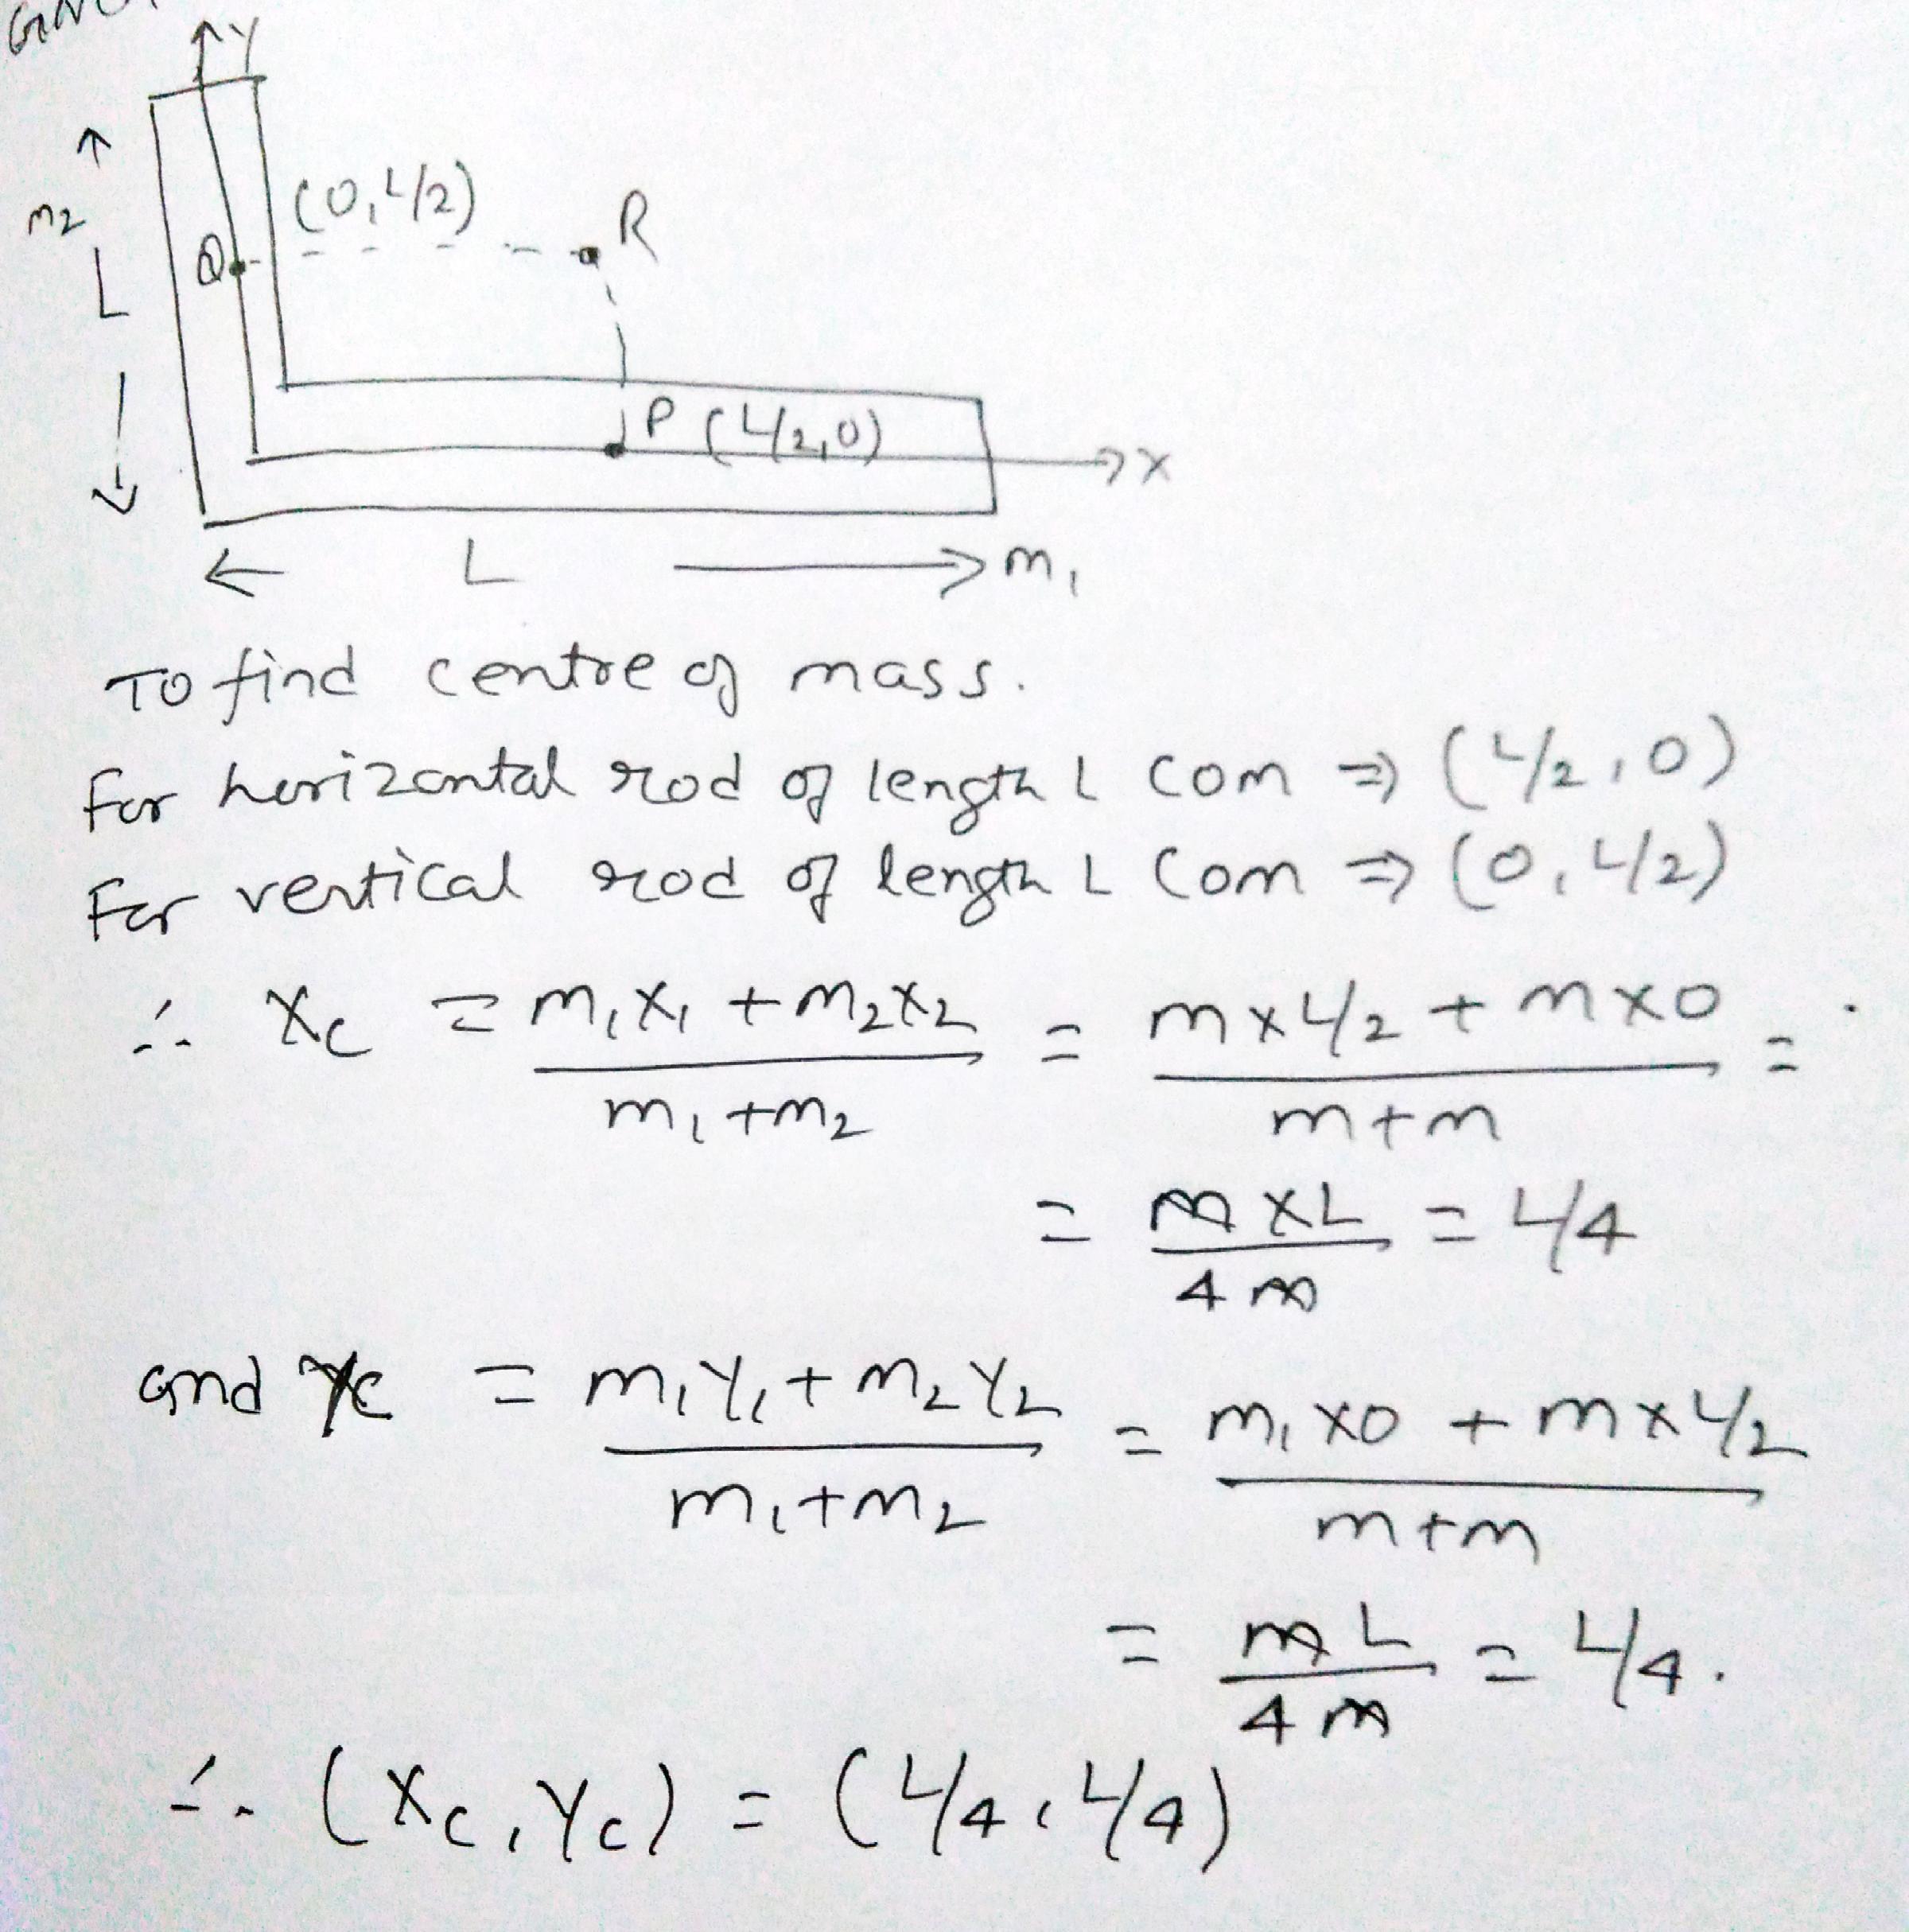 Y
(0, L/2)
R
m2
Q
L
P (L/2, 0)
X
L
m1
To find centre of mass.
For horizontal rod of length L com ⇒ (L/2, 0)
For vertical rod of length L com ⇒ (0, L/2)
∴ Xc = m1X1 + m2X2 / m1 + m2 = m x L/2 + m x 0 / m + m =
= m x L / 4m = L/4
and Yc = m1Y1 + m2Y2 / m1 + m2 = m1 x 0 + m x L/2 / m + m
= mL / 4m = L/4.
∴ (Xc, Yc) = (L/4, L/4)